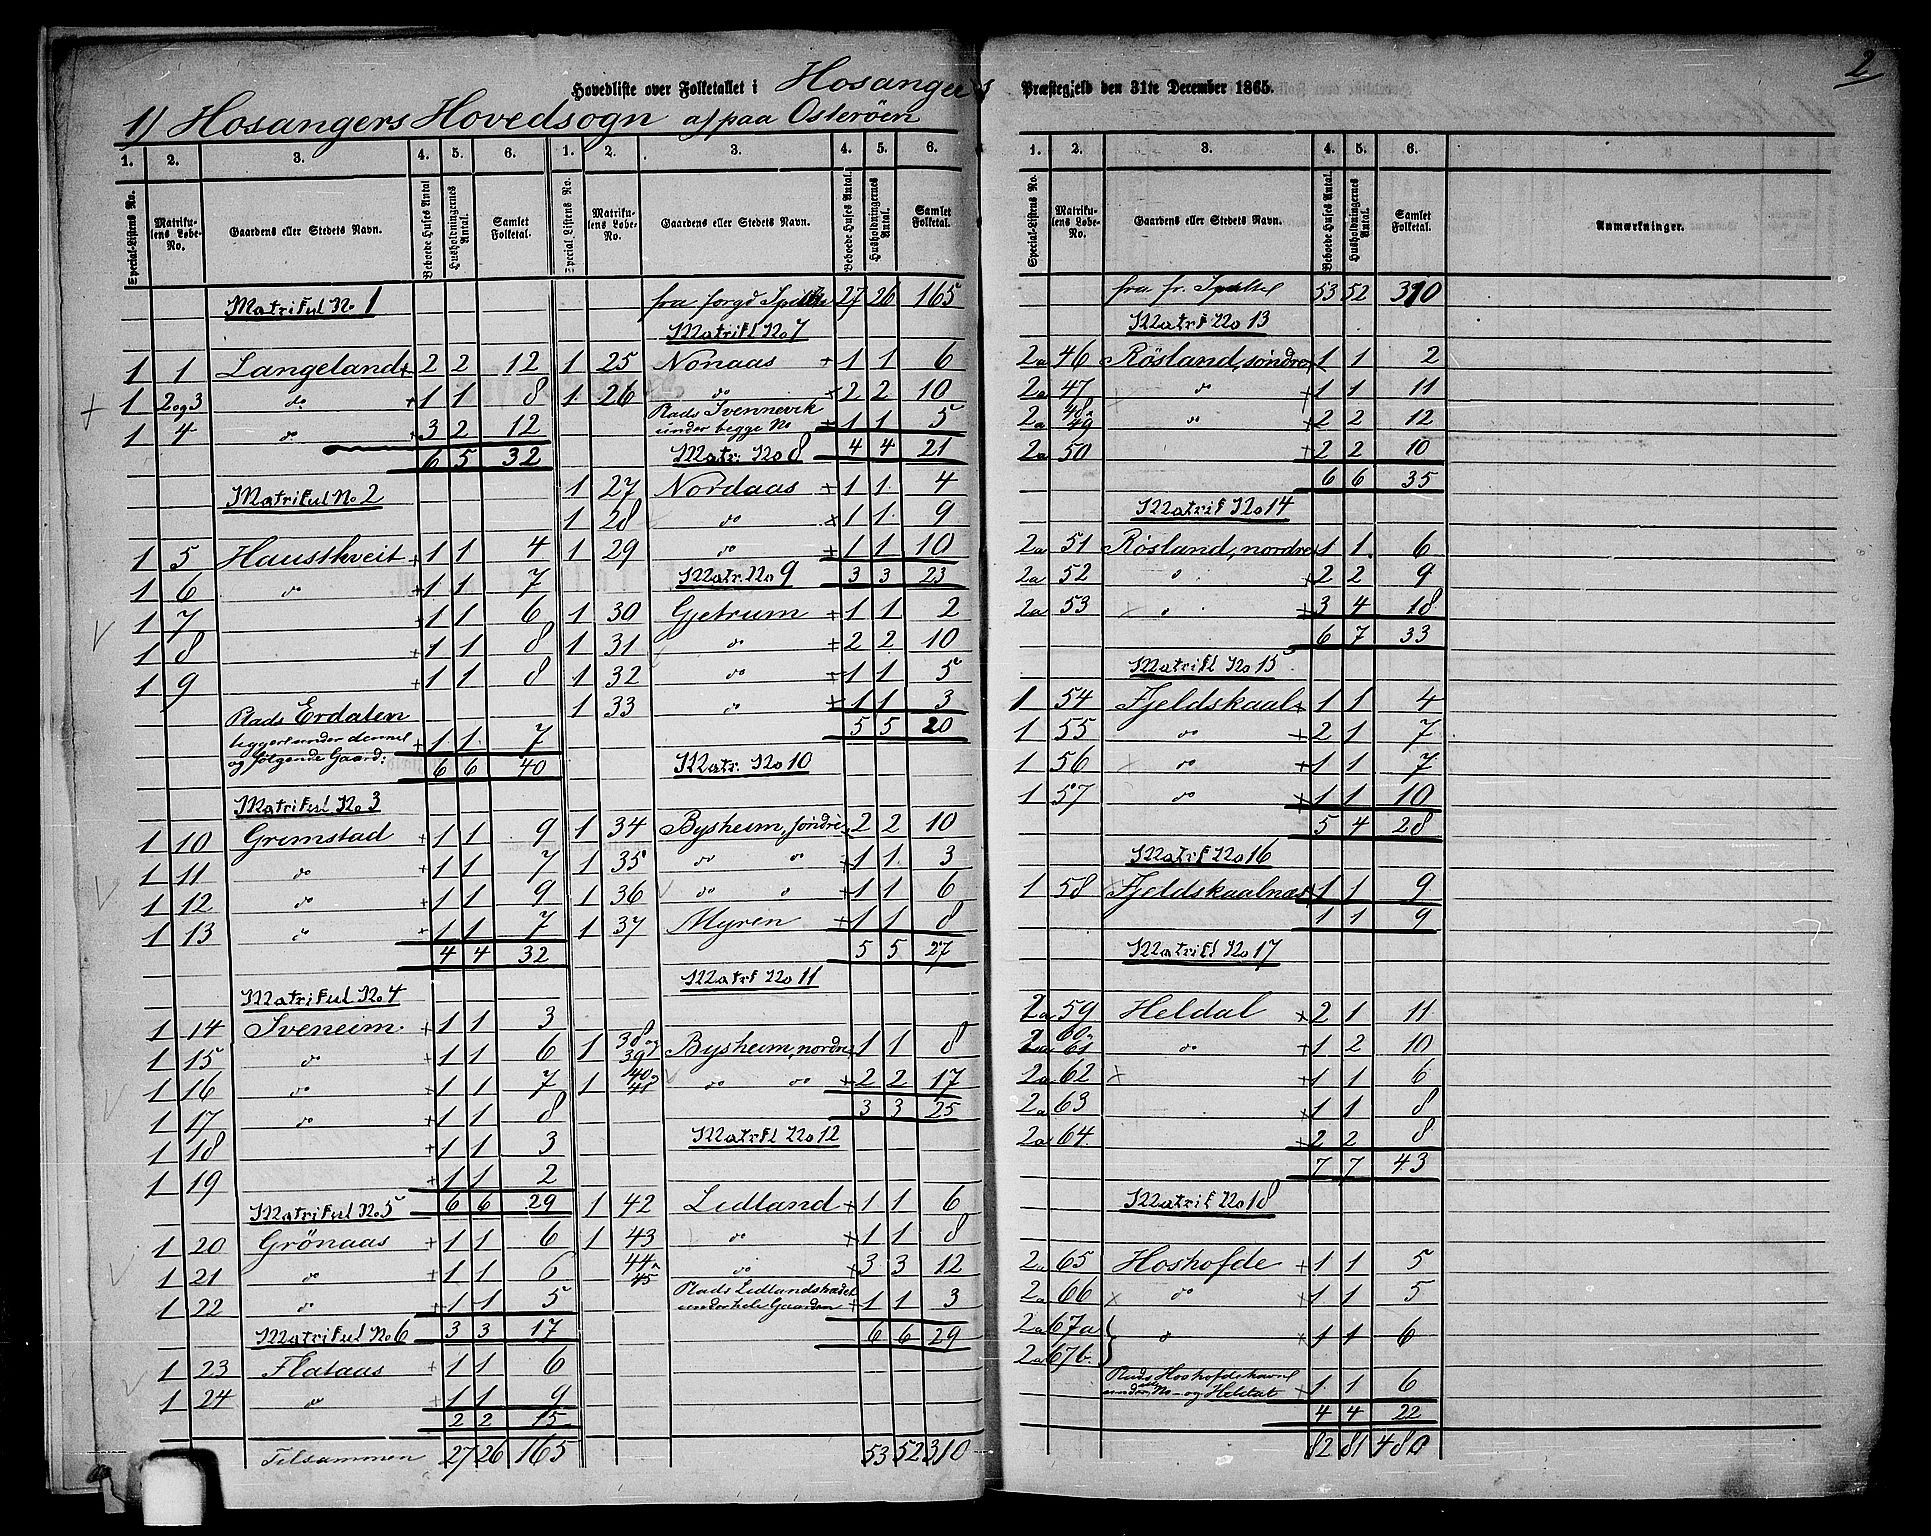 2
Hovedliste over Folketallet i Hosangers Præstegjeld den 31te December 1865.
1) Hosangers Hovedsogn a) paa Osterøen
1. 2. 3. 4. 5. 6. 1. 2. 3. 4. 5. 6.
Special-Listens No. Matrikulens Løbe-No. Gaardens eller Stedets Navn. Beboede Huses Antal Husholdningernes Antal. Samlet Folketal. Special Listens No. Matrikulens Løbe-No. Gaardens eller Stedets Navn. Beboede Huses Antal. Husholdningernes Antal. Samlet Folketal.
Matrikul No 1
1 1 Langeland 2 2 12
1 2og3 do 1 1 8
1 4 do 3 2 12
6 5 32
Matrikul No 2
1 5 Hausthveit 1 1 4
1 6 do 1 1 7
1 7 1 1 6
1 8 1 1 8
1 9 1 1 8
Plads Erdalen
liggerl under denne
og følgende Gaard: 1 1 7
6 6 40
Matrikul No 3
1 10 Gremstad 1 1 9
1 11 do 1 1 7
1 12 do 1 1 9
1 13 do 1 1 7
4 4 32
Matrikul No 4
1 14 Iveneim 1 1 3
1 15 do 1 1 6
1 16 do 1 1 7
1 17 do 1 1 8
1 18 1 1 3
1 19 1 1 2
Matrikul No 5 6 6 29
1 20 Grönaas 1 1 6
1 21 do 1 1 6
1 22 do 1 1 5
Matrikul No 6 3 3 17
1 23 Flataas 1 1 6
1 24 do 1 1 9
2 2 15
Tilsammen 27 26 165
fra forgd Spalte 27 26 165
Matrikl No 7
1 25 Nonaas 1 1 6
1 26 do 2 2 10
Plads Svennevik
under begge No 1 1 5
Matr. No 8 4 4 21
1 27 Nordaas 1 1 4
1 28 do 1 1 9
1 29 do 1 1 10
Matr. No 9 3 3 23
1 30 Gjetrum 1 1 2
1 31 do 2 2 10
1 32 do 1 1 5
1 33 do 1 1 3
5 5 20
Matr. No 10
1 34 Bysheim, søndre 2 2 10
1 35 do do 1 1 3
1 36 do do 1 1 6
1 37 Myren 1 1 8
5 5 27
Matrk No 11
1 38 og 39 Bysheim, nordre 1 1 8
1 40 og 41 do do 2 2 17
3 3 25
Matrikl No 12
1 42 Lidland 1 1 6
1 43 do 1 1 8
44 45 do 3 3 12
Plads Lidlandskadet
under hele Gaarden 1 1 3
6 6 29
53 52 310
1. 2. 3. 4. 5. 6. 7.
Special-Listens No. Matrikulens Løbe-No. Gaardens eller Stedets Navn. Beboede Huses Antal. Husholdningernes Antal. Samlet Folketal. Anmærkninger.
fra fr. Spalte 53 52 310
Matrk No 13
2a 46 Røsland, søndre 1 1 2
2a 47 do 1 1 11
2a 48 49 do 2 2 12
2a 50 2 2 10
6 6 35
Matrik No 14
2a 51 Røsland, nordre 1 1 6
2a 52 2 2 9
2a 53 3 4 18
6 7 33
Matrikl No 15
1 54 Fjeldskaal 1 1 4
1 55 do 2 1 7
1 56 do 1 1 7
1 57 do 1 1 10
5 4 28
Matrk No 16
1 58 Fjeldskaalnæs 1 1 9
1 1 9
Matrikl No 17
2a 59 Heldal 2 1 11
2a 60 61 do 1 2 10
2a 62 1 1 6
2a 63 1 1 8
2a 64 2 2 8
7 7 43
Matrik No 18
2a 65 Hoshofde 1 1 5
2a 66 do 1 1 5
2a 67a do 1 1 6
2a 67b.
Plads Hoshofdehavnl
under No - og Heldal 1 1 6
4 4 22
82 81 480